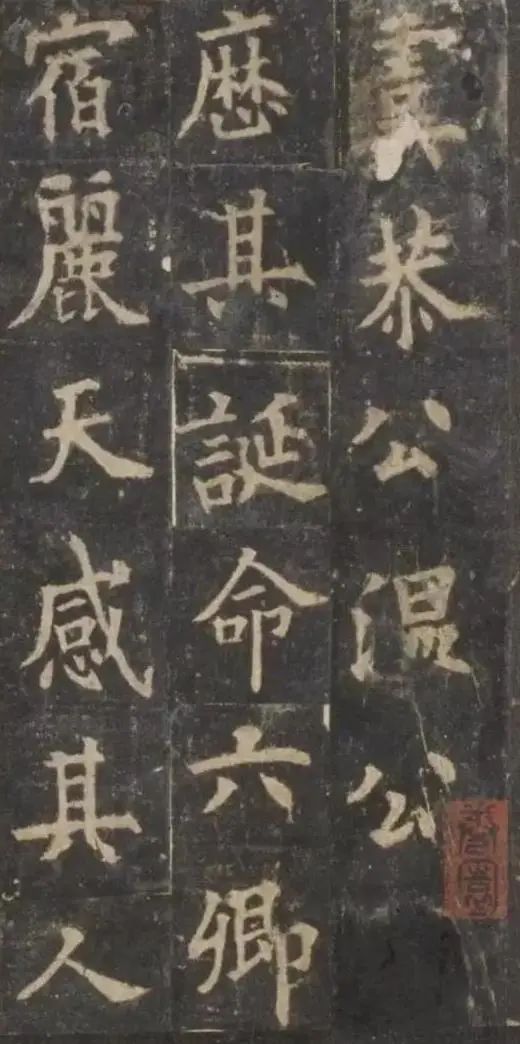 虞恭公温公
歴其誕命六卿
宿麗天感其人